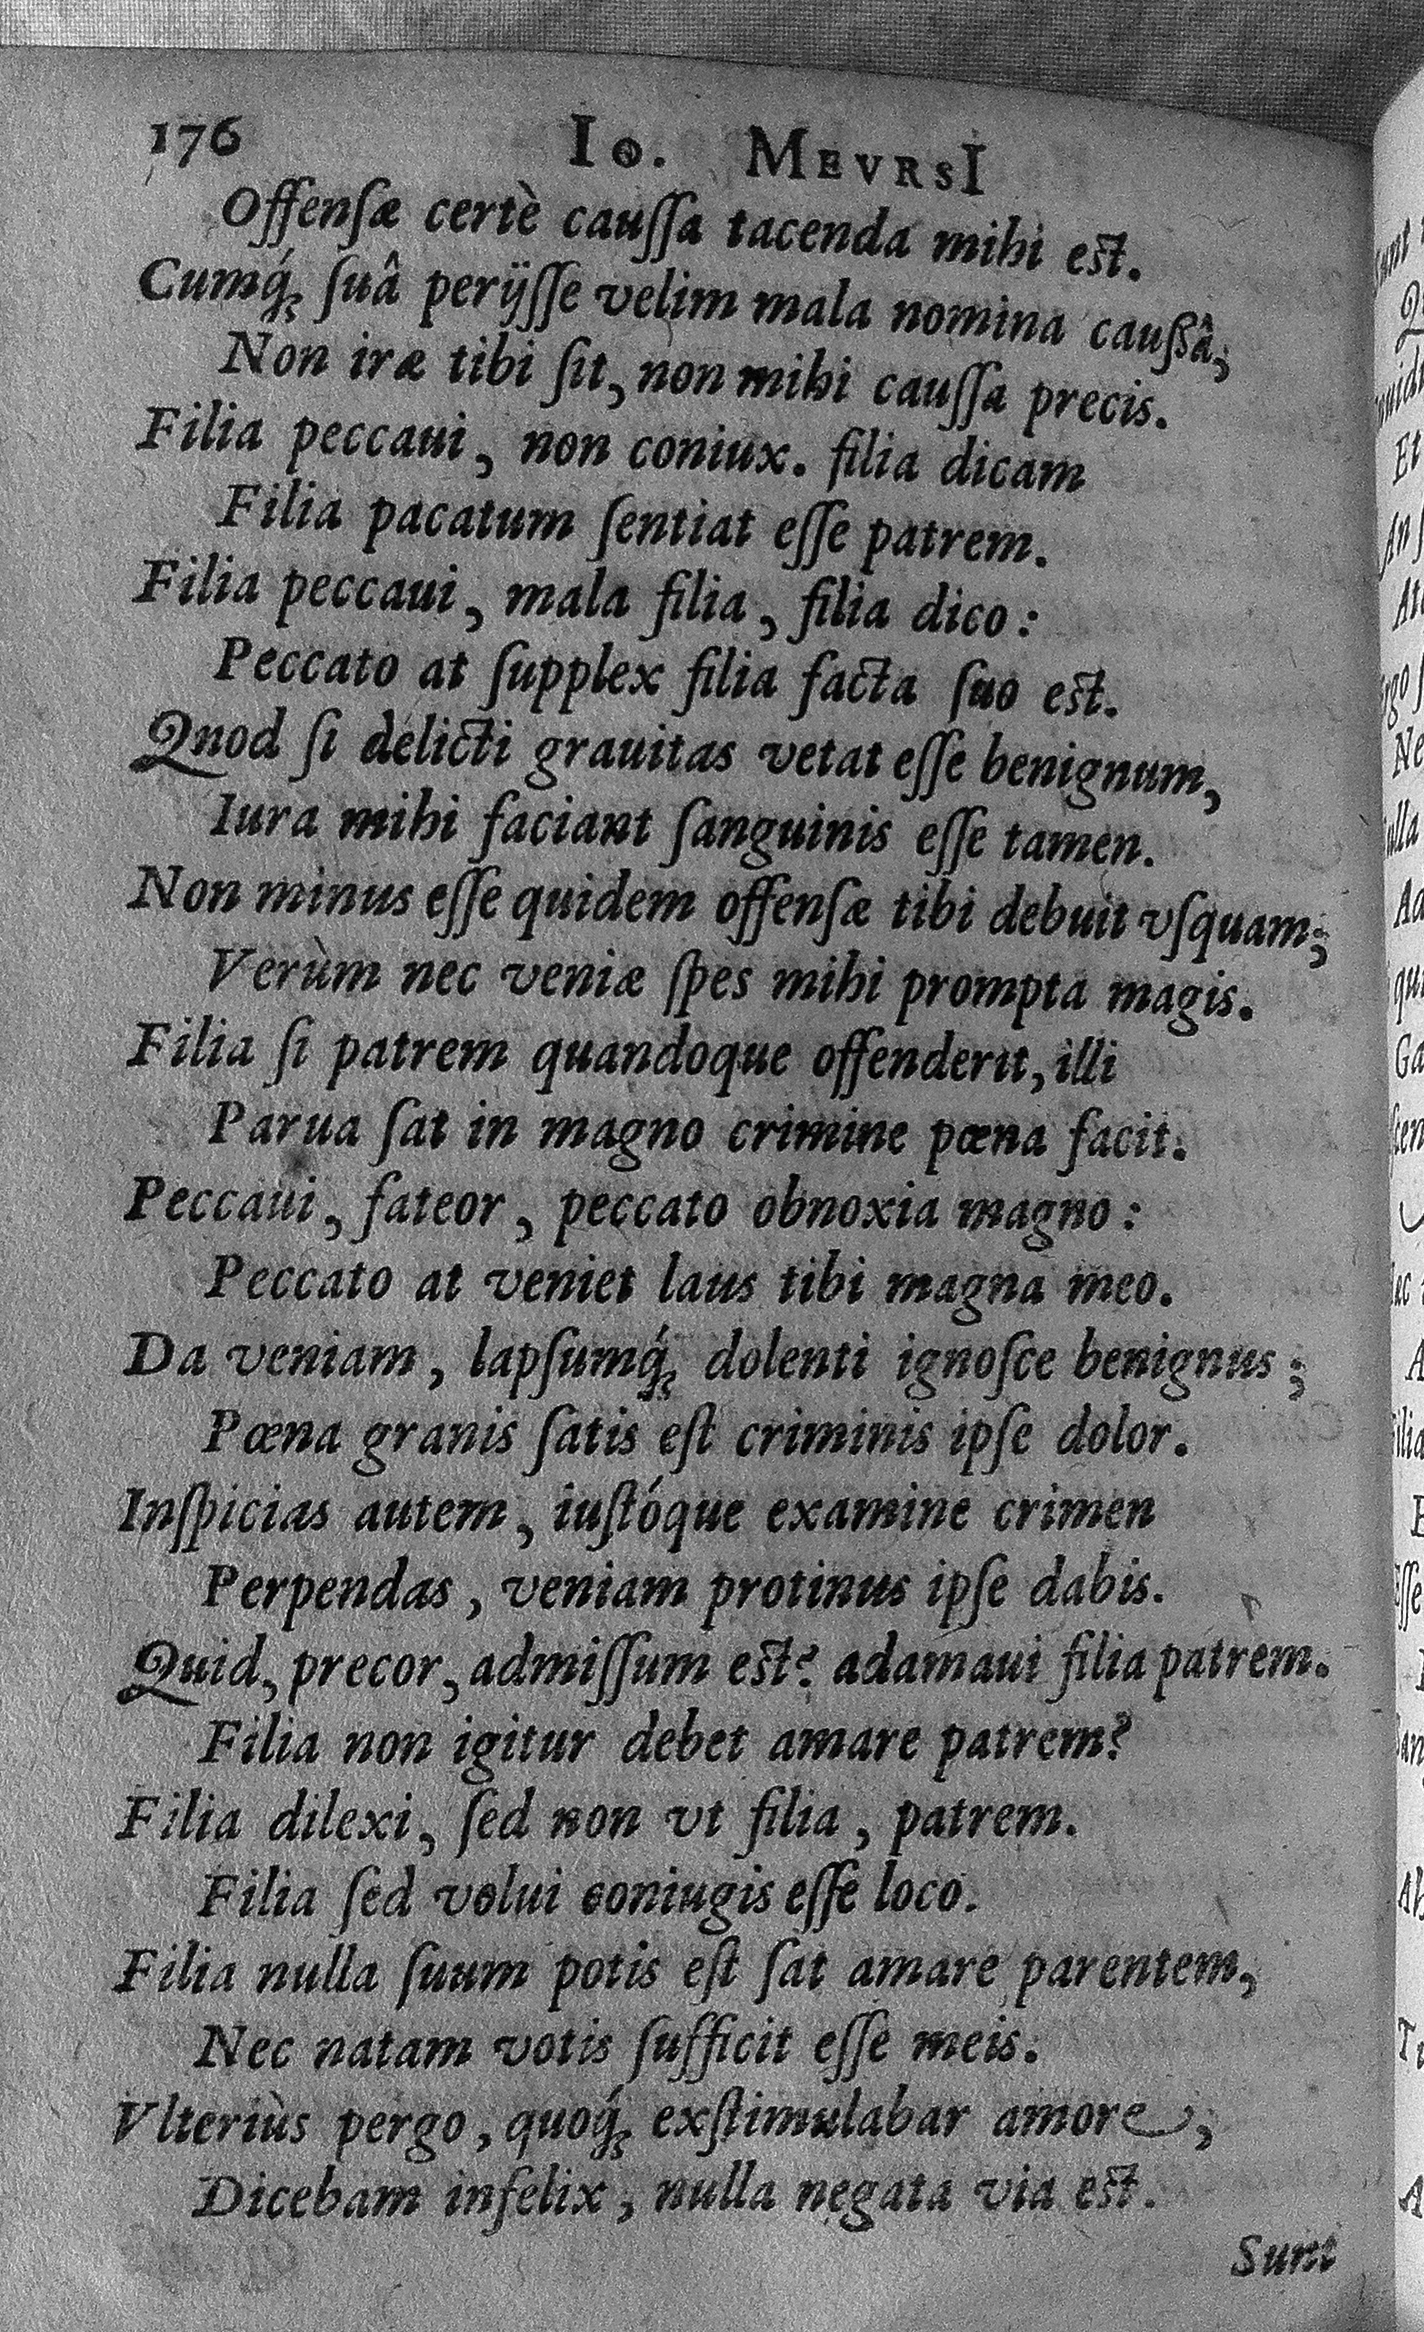 176 Io. MEVRSI
Offenſæ certè cauſſa tacenda mihi est.
Cumq́; ſuâ perijſſe velim mala nomina cauſsâ,
Non iræ tibi ſit, non mihi cauſſa precis.
Filia peccaui, non coniux. filia dicam
Filia pacatum ſentiat eſſe patrem.
Filia peccaui, mala filia, filia dico:
Peccato at ſupplex filia facta ſuo est.
Quod ſi delicti grauitas vetat eſſe benignum,
Iura mihi faciant ſanguinis eſſe tamen.
Non minus eſſe quidem offenſæ tibi debuit vſquam;
Verùm nec veniæ ſpes mihi prompta magis.
Filia ſi patrem quandoque offenderit, illi
Parua ſat in magno crimine pœna facit.
Peccaui, fateor, peccato obnoxia magno:
Peccato at veniet laus tibi magna meo.
Da veniam, lapſumq́; dolenti ignoſce benignus;
Pœna granis ſatis eſt criminis ipſe dolor.
Inſpicias autem, iuſtóque examine crimen
Perpendas, veniam protinus ipſe dabis.
Quid, precor, admiſſum est? adamaui filia patrem.
Filia non igitur debet amare patrem?
Filia dilexi, ſed non vt filia, patrem.
Filia ſed volui coniugis eſſe loco.
Filia nulla ſuum potis eſt ſat amare parentem,
Nec natam votis ſufficit eſſe meis.
Vlteriùs pergo, quoq́; exſtimulabar amore,
Dicebam infelix, nulla negata via est.
Sunt